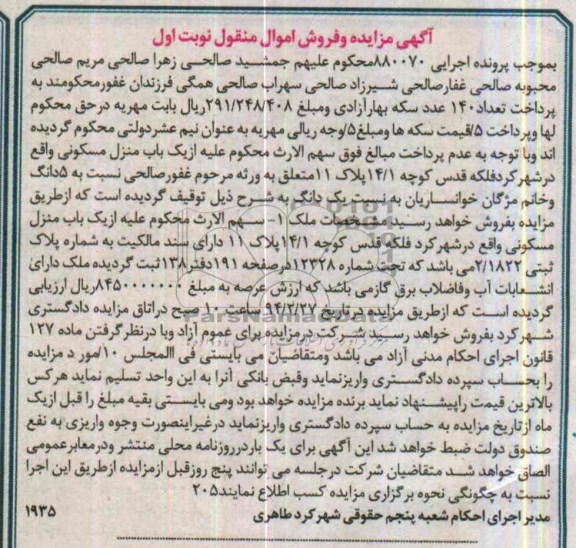 آگهی مزایده وفروش اموال منقول نوبت اول
بموجب پرونده اجرایی ۸۸۰۰۷۰محکوم علیهم جمشید صالحی زهرا صالحی مریم صالحی
محبوبه صالحی غفارصالحی شیرزاد صالحی سهراب صالحی همگی فرزندان غفورمحکومند به
پرداخت تعداد۱۴۰ عدد سکه بهارآزادی ومبلغ ۲۹۱/۲۴۸/۴۰۸ریال بابت مهریه درحق محکوم
لها وپرداخت ۵/قیمت سکه ها ومبلغ۵/وجه ریالی مهریه به عنوان نیم عشردولتی محکوم گردیده
اند وبا توجه به عدم پرداخت مبالغ فوق سهم الارث محکوم علیه ازیک باب منزل مسکونی واقع
درشهرکردفلکه قدس کوچه ۱۴/۱پلاک ۱۱متعلق به ورثه مرحوم غفورصالحی نسبت به ۵دانگ
وخانم مژگان خوانساریان به نسبت یک دانگ به شرح ذیل توقیف گردیده است که ازطریق
مزایده بفروش خواهد رسید. مشخصات ملک ۱- سهم الارث محکوم علیه ازیک باب منزل
مسکونی واقع درشهرکرد فلکه قدس کوچه ۱۴/۱پلاک ۱۱ دارای سند مالکیت به شماره پلاک
ثبتی ۲/۱۸۲۲می باشد که تحت شماره ۱۲۳۲۸درصفحه ۱۹۱دفتر۱۳۸ثبت گردیده ملک دارای
انشعابات آب وفاضلاب برق گازمی باشد که ارزش عرصه به مبلغ ۸۴۵۰۰۰۰۰۰۰ریال ارزیابی
گردیده است که ازطریق مزایده درتاریخ ۹۴/۲/۲۷ ساعت ۱۰ صبح دراتاق مزایده دادگستری
شهرکرد بفروش خواهد رسید شرکت درمزایده برای عموم آزاد وبا درنظرگرفتن ماده ۱۲۷
قانون اجرای احکام مدنی آزاد می باشد ومتقاضیان می بایستی فی االمجلس ۱۰/مور د مزایده
را بحساب سپرده دادگستری واریزنماید وقبض بانکی آنرا به این واحد تسلیم نماید هرکس
بالاترین قیمت راپیشنهاد نماید برنده مزایده خواهد بود ومی بایستی بقیه مبلغ را قبل ازیک
ماه ازتاریخ مزایده به حساب سپرده دادگستری واریزنماید درغیراینصورت وجوه واریزی به نفع
صندوق دولت ضبط خواهد شد این آگهی برای یک باردرروزنامه محلی منتشر ودرمعابرعمومی
الصاق خواهد شد متقاضیان شرکت درجلسه می توانند پنج روزقبل ازمزایده ازطریق این اجرا
نسبت به چگونگی نحوه برگزاری مزایده کسب اطلاع نمایند۲۰۵
مدیر اجرای احکام شعبه پنجم حقوقی شهرکرد طاهری ۱۹۳۵